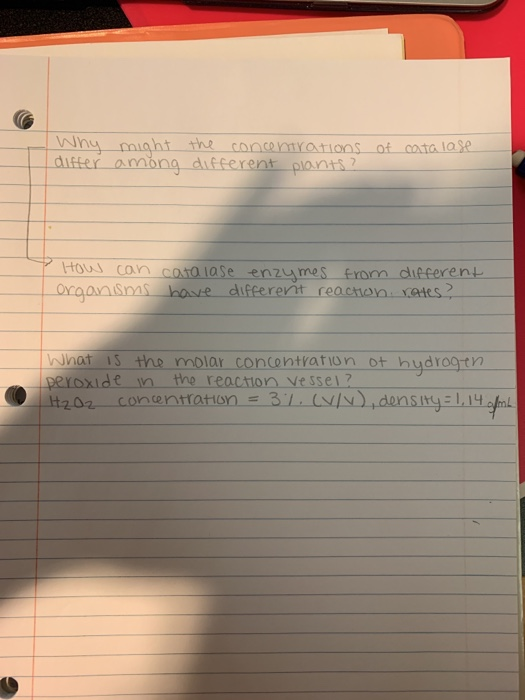 Why might the concentrations of catalase
differ among different plants?
How can catalase enzymes from different
organisms have different reaction rates?
What is the molar concentration of hydrogen
peroxide in the reaction vessel?
H₂O₂ concentration = 3%. (v/v), density = 1.14 g/mL